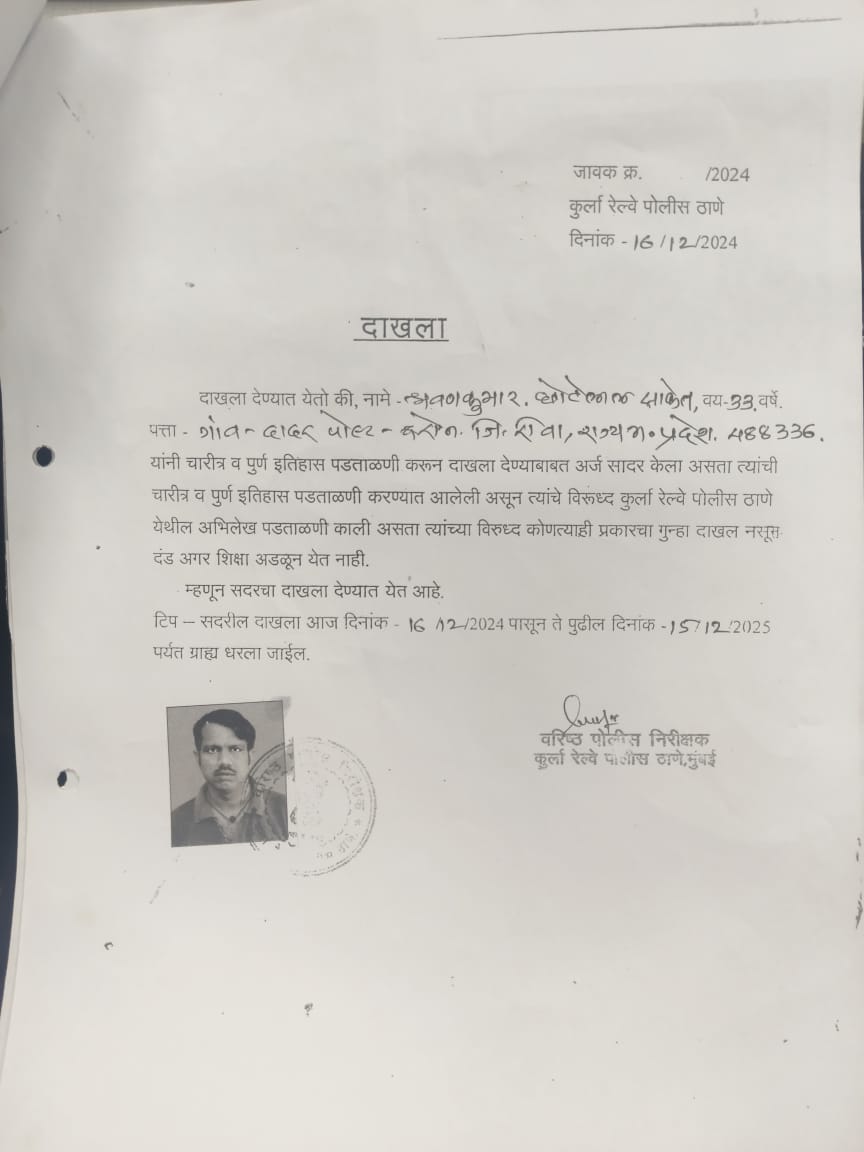 जावक क्र. /2024
कुर्ला रेल्वे पोलीस ठाणे
दिनांक - 16/12/2024
दाखला
दाखला देण्यात येतो की, नामे - श्रवणकुमार. छोटेलाल साकेत, वय-33 वर्षे.
पत्ता - गांव - दादर पोस्ट - जि. रिवा, राज्य म. प्रदेश. 488336.
यांनी चारीत्र व पुर्ण इतिहास पडताळणी करून दाखला देण्याबाबत अर्ज सादर केला असता त्यांची
चारीत्र व पुर्ण इतिहास पडताळणी करण्यात आलेली असून त्यांचे विरूध्द कुर्ला रेल्वे पोलीस ठाणे
येथील अभिलेख पडताळणी काली असता त्यांच्या विरुध्द कोणत्याही प्रकारचा गुन्हा दाखल नसून
दंड अगर शिक्षा अडळून येत नाही.
म्हणून सदरचा दाखला देण्यात येत आहे.
टिप – सदरील दाखला आज दिनांक - 16/12/2024 पासून ते पुढील दिनांक - 15/12/2025
पर्यत ग्राह्य धरला जाईल.
वरिष्ठ पोलीस निरीक्षक
कुर्ला रेल्वे पोलीस ठाणे,मुंबई